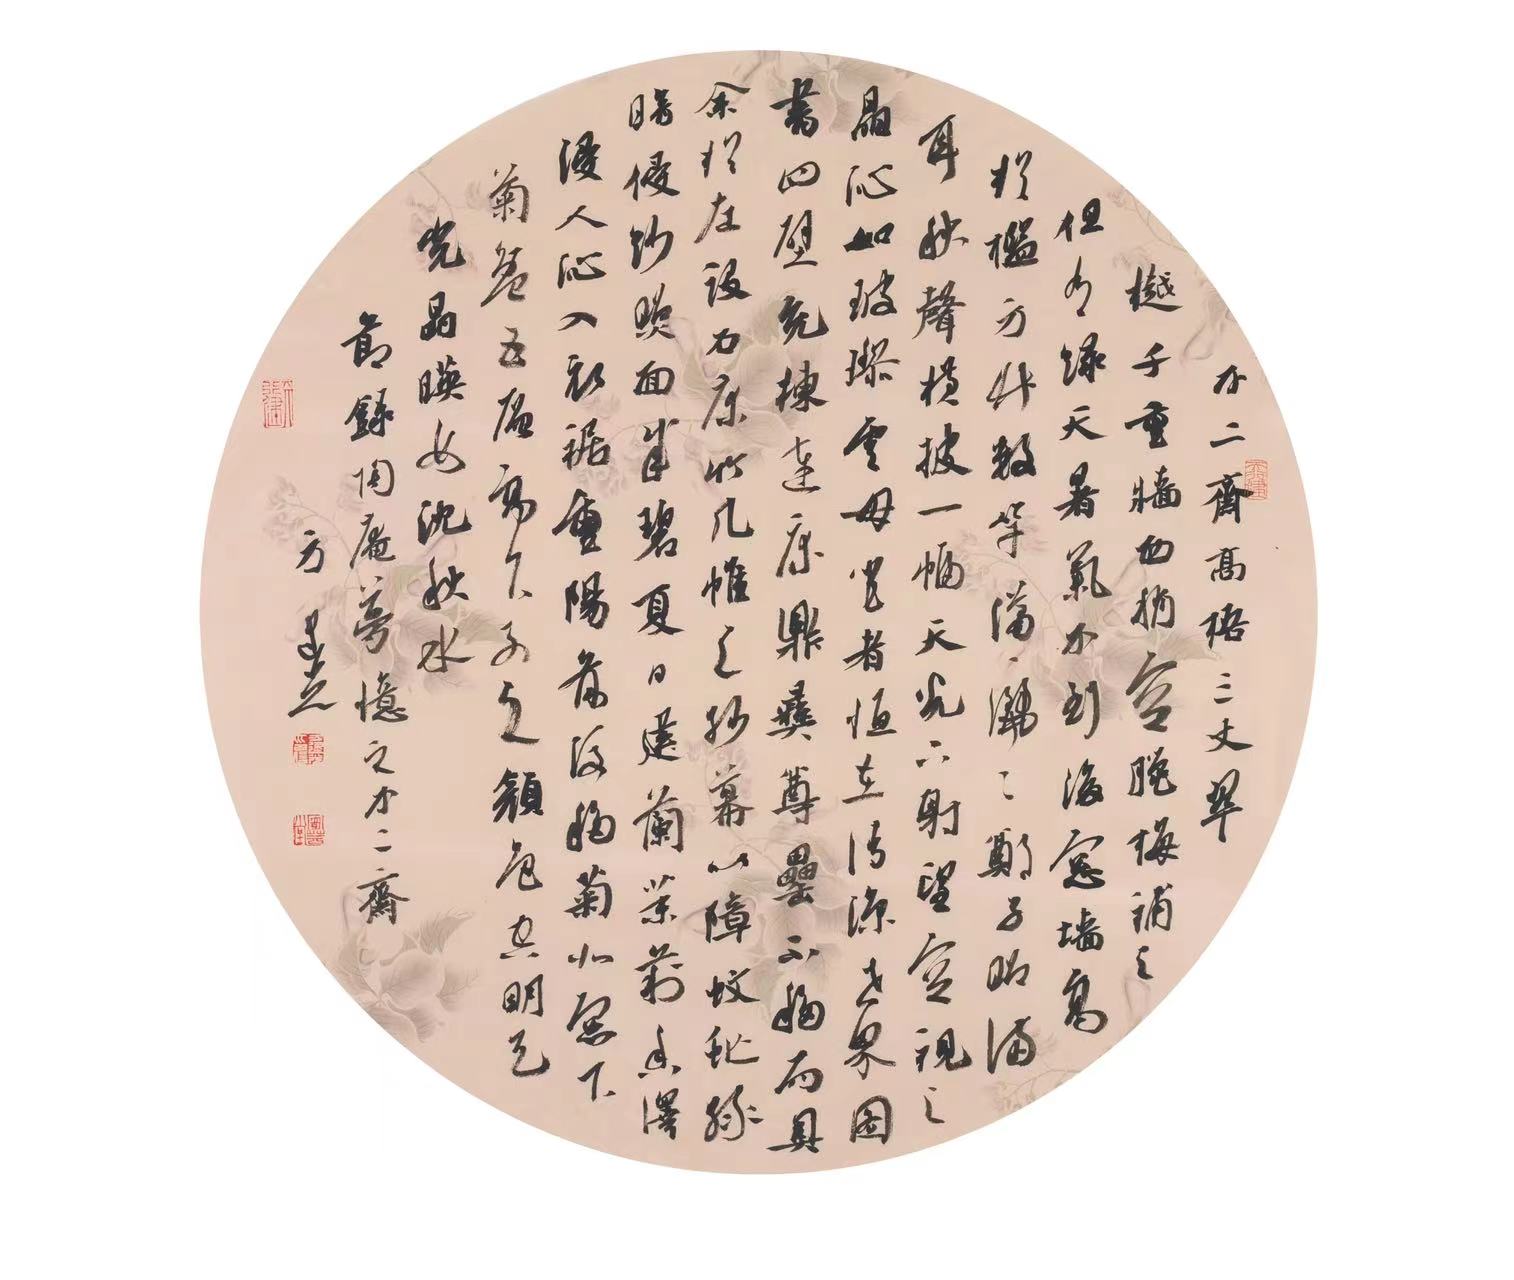 不二齋高梧三丈翠
樾千重牆西稍空臘梅補之
但有綠天暑氣不到後窗墻高
於檻方竹數竿瀟瀟灑灑鄭子昭滿
耳秋聲橫披一幅天光下射望空視之
晶沁如玻璃雲母坐者恆在清涼世界圖
書四壁充棟連床鼎彝尊罍不移而具
余於左設石床竹几帷之紗幕以障蚊虻綠
暗侵紗照面成碧夏日建蘭茉莉香澤
浸人沁入衣裾重陽前後移菊北窗下
菊盆五層高下列之顏色空明天
光晶映如沈秋水
節錄陶庵夢憶之不二齋
方建光